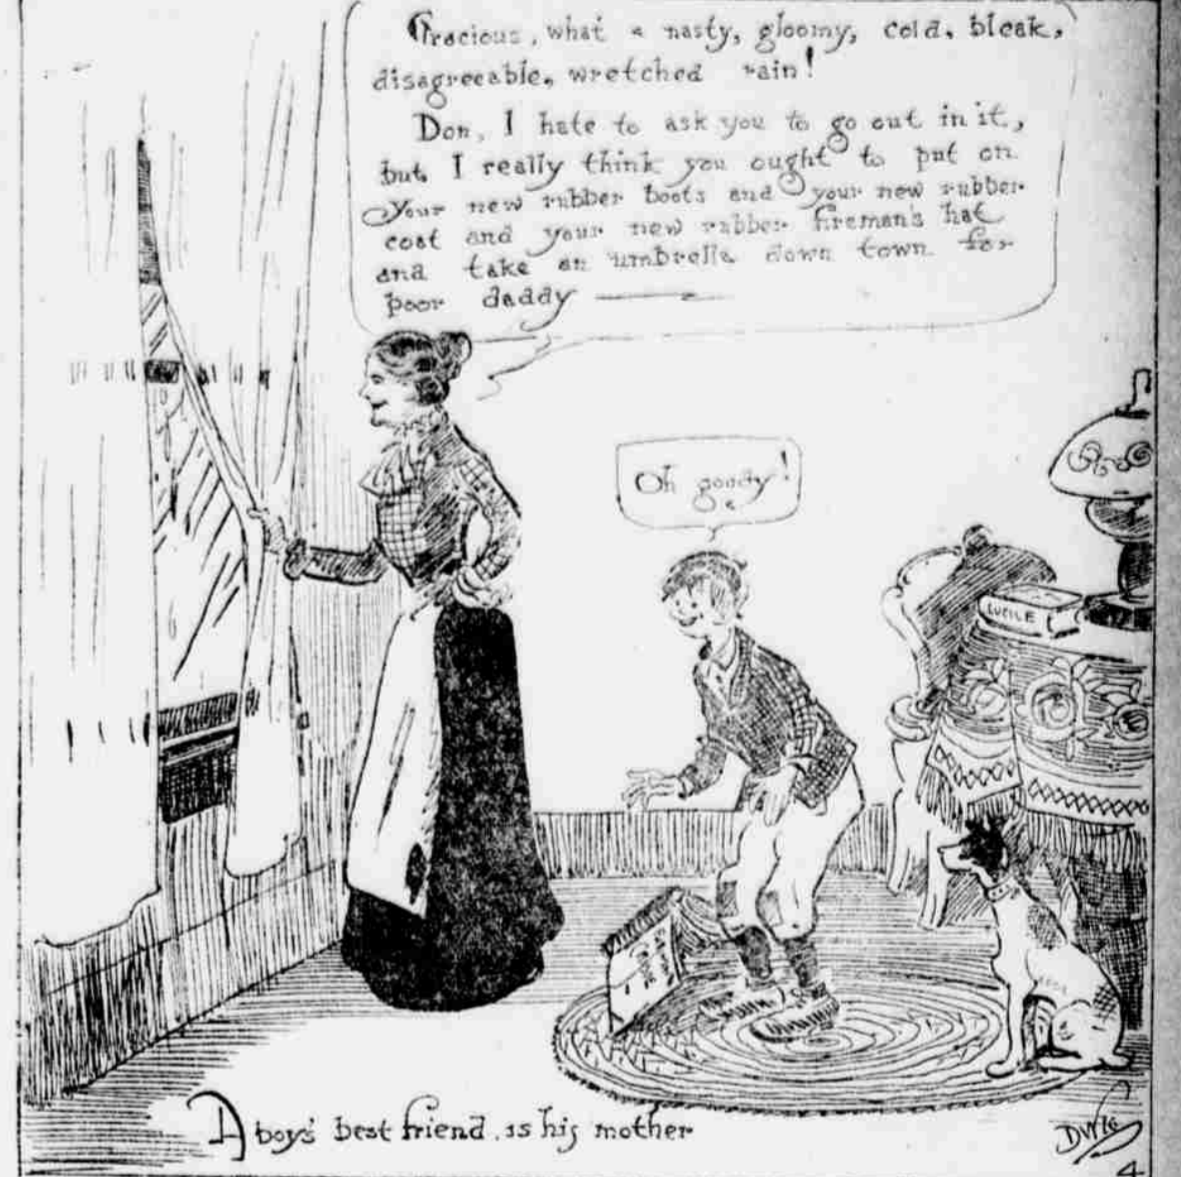 Gracious, what a nasty, gloomy, cold, bleak,
disagreeable, wretched rain!
Don, I hate to ask you to go out in it,
but I really think you ought to put on
your new rubber boots and your new rubber
coat and your new rubber fireman's hat
and take an umbrella down town for
poor daddy
Oh goody!
LUCILE
A boy's best friend is his mother
4